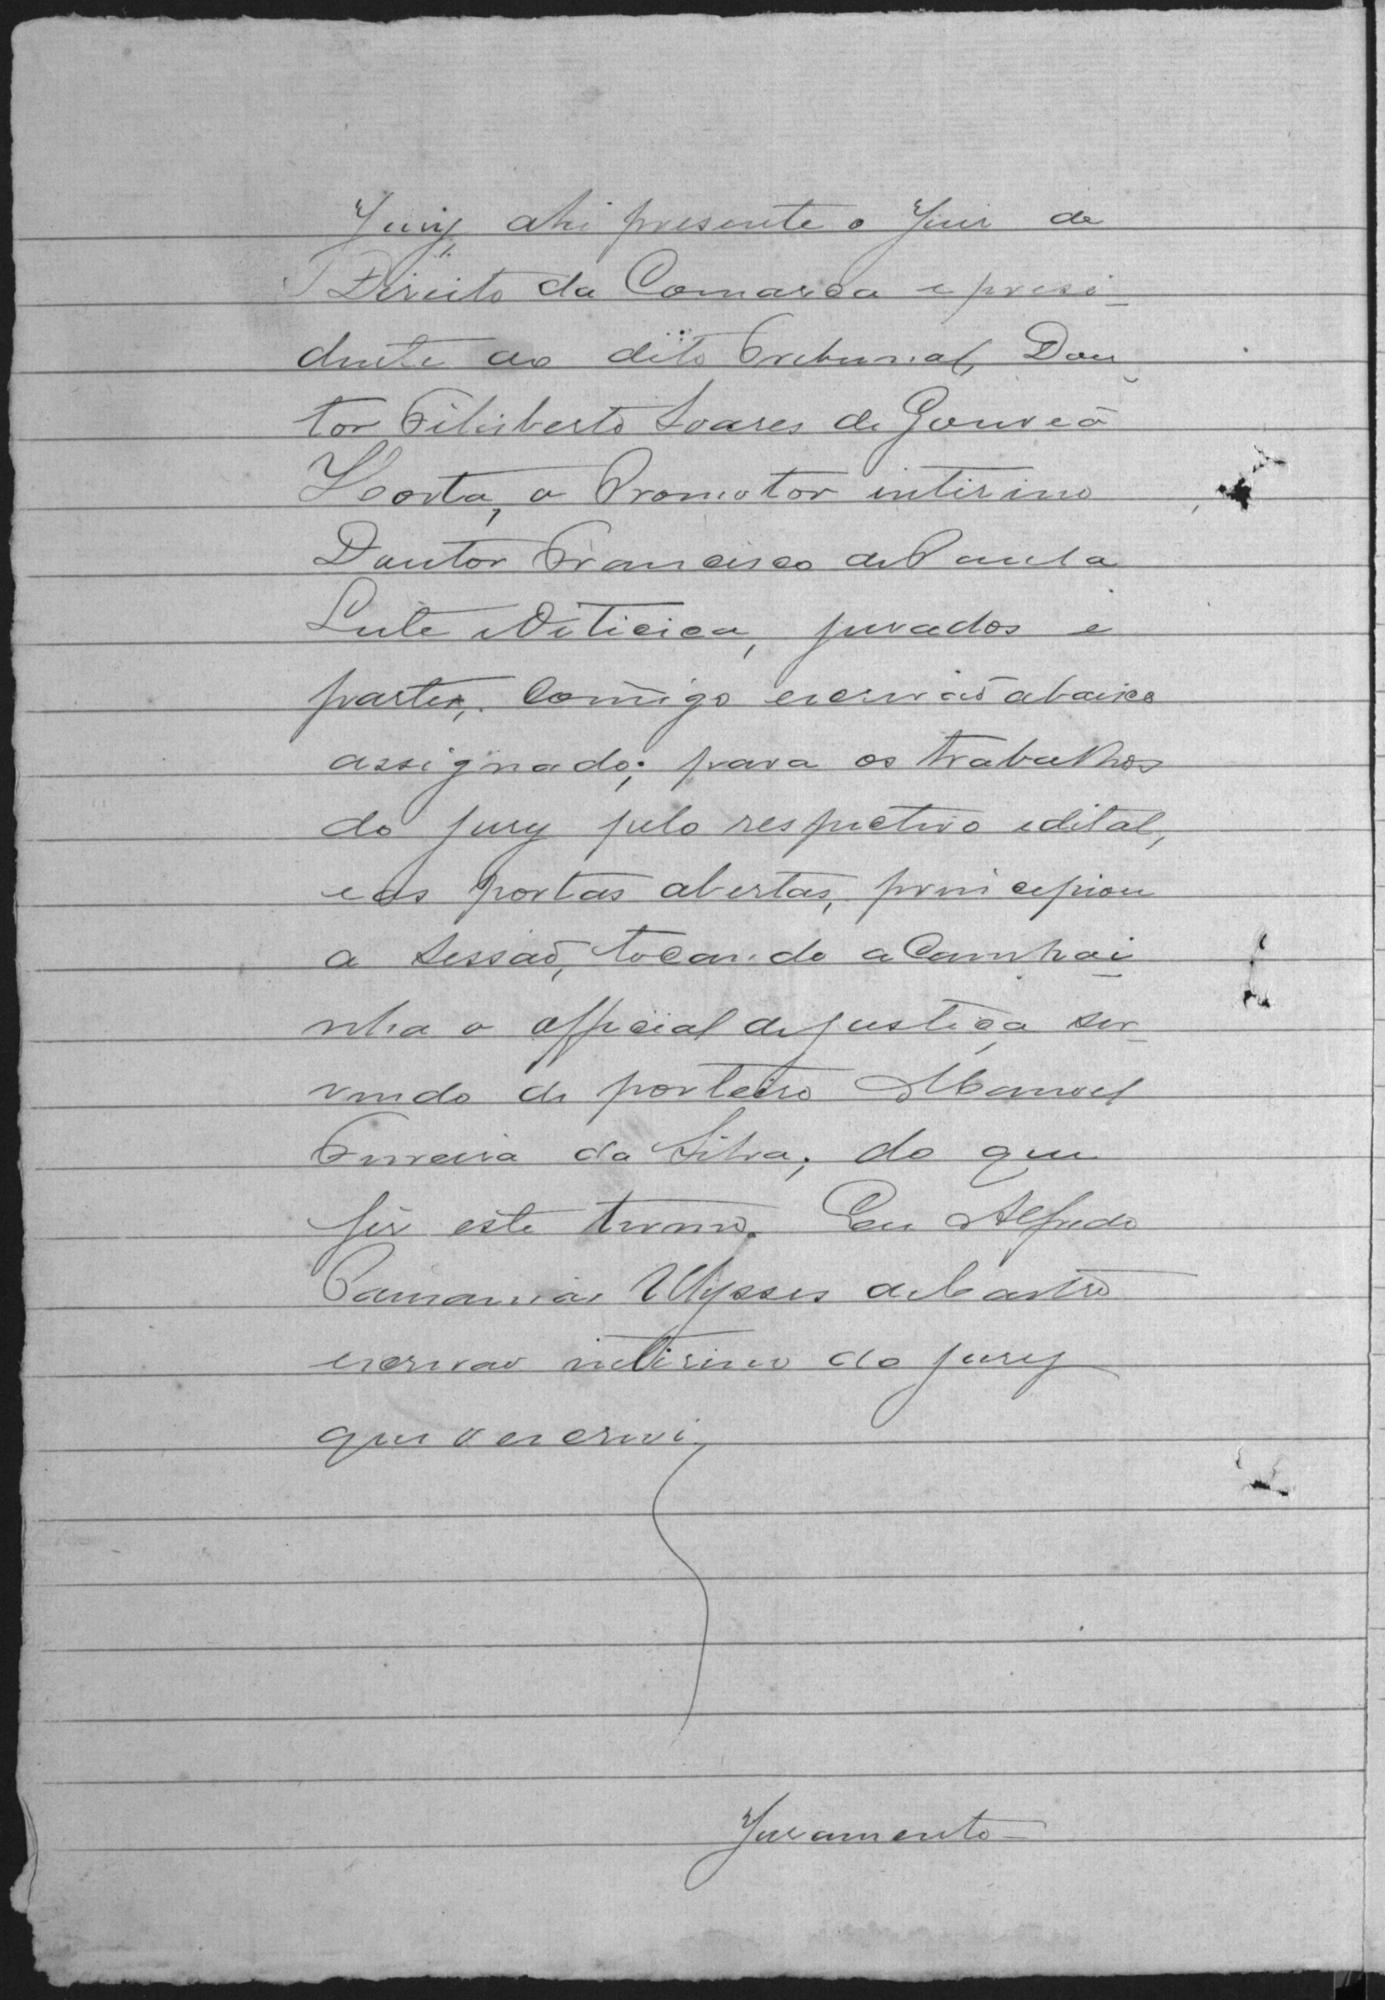 Jury, ahi presente o Juiz de
Direito da Comarca e presi-
dente do dito Tribunal, Dou
tor Filisberto Soares de Gouvêa
Horta, o Promotor interino
Doutor Francisco de Paula
Leite e Oiticica, jurados e
partes, comigo escrivão abaixo
assignado; para os trabalhos
do jury pelo respectivo edital,
e as portas abertas, principiou
a sessão, tocando a Campai
nha o official de justiça ser-
vindo de porteiro Manoel
Ferreira da Silva; do que
fiz este termo. Eu Alfredo
Ulysses de Castro
escrivão interino do jury
que o escrevi
Juramento